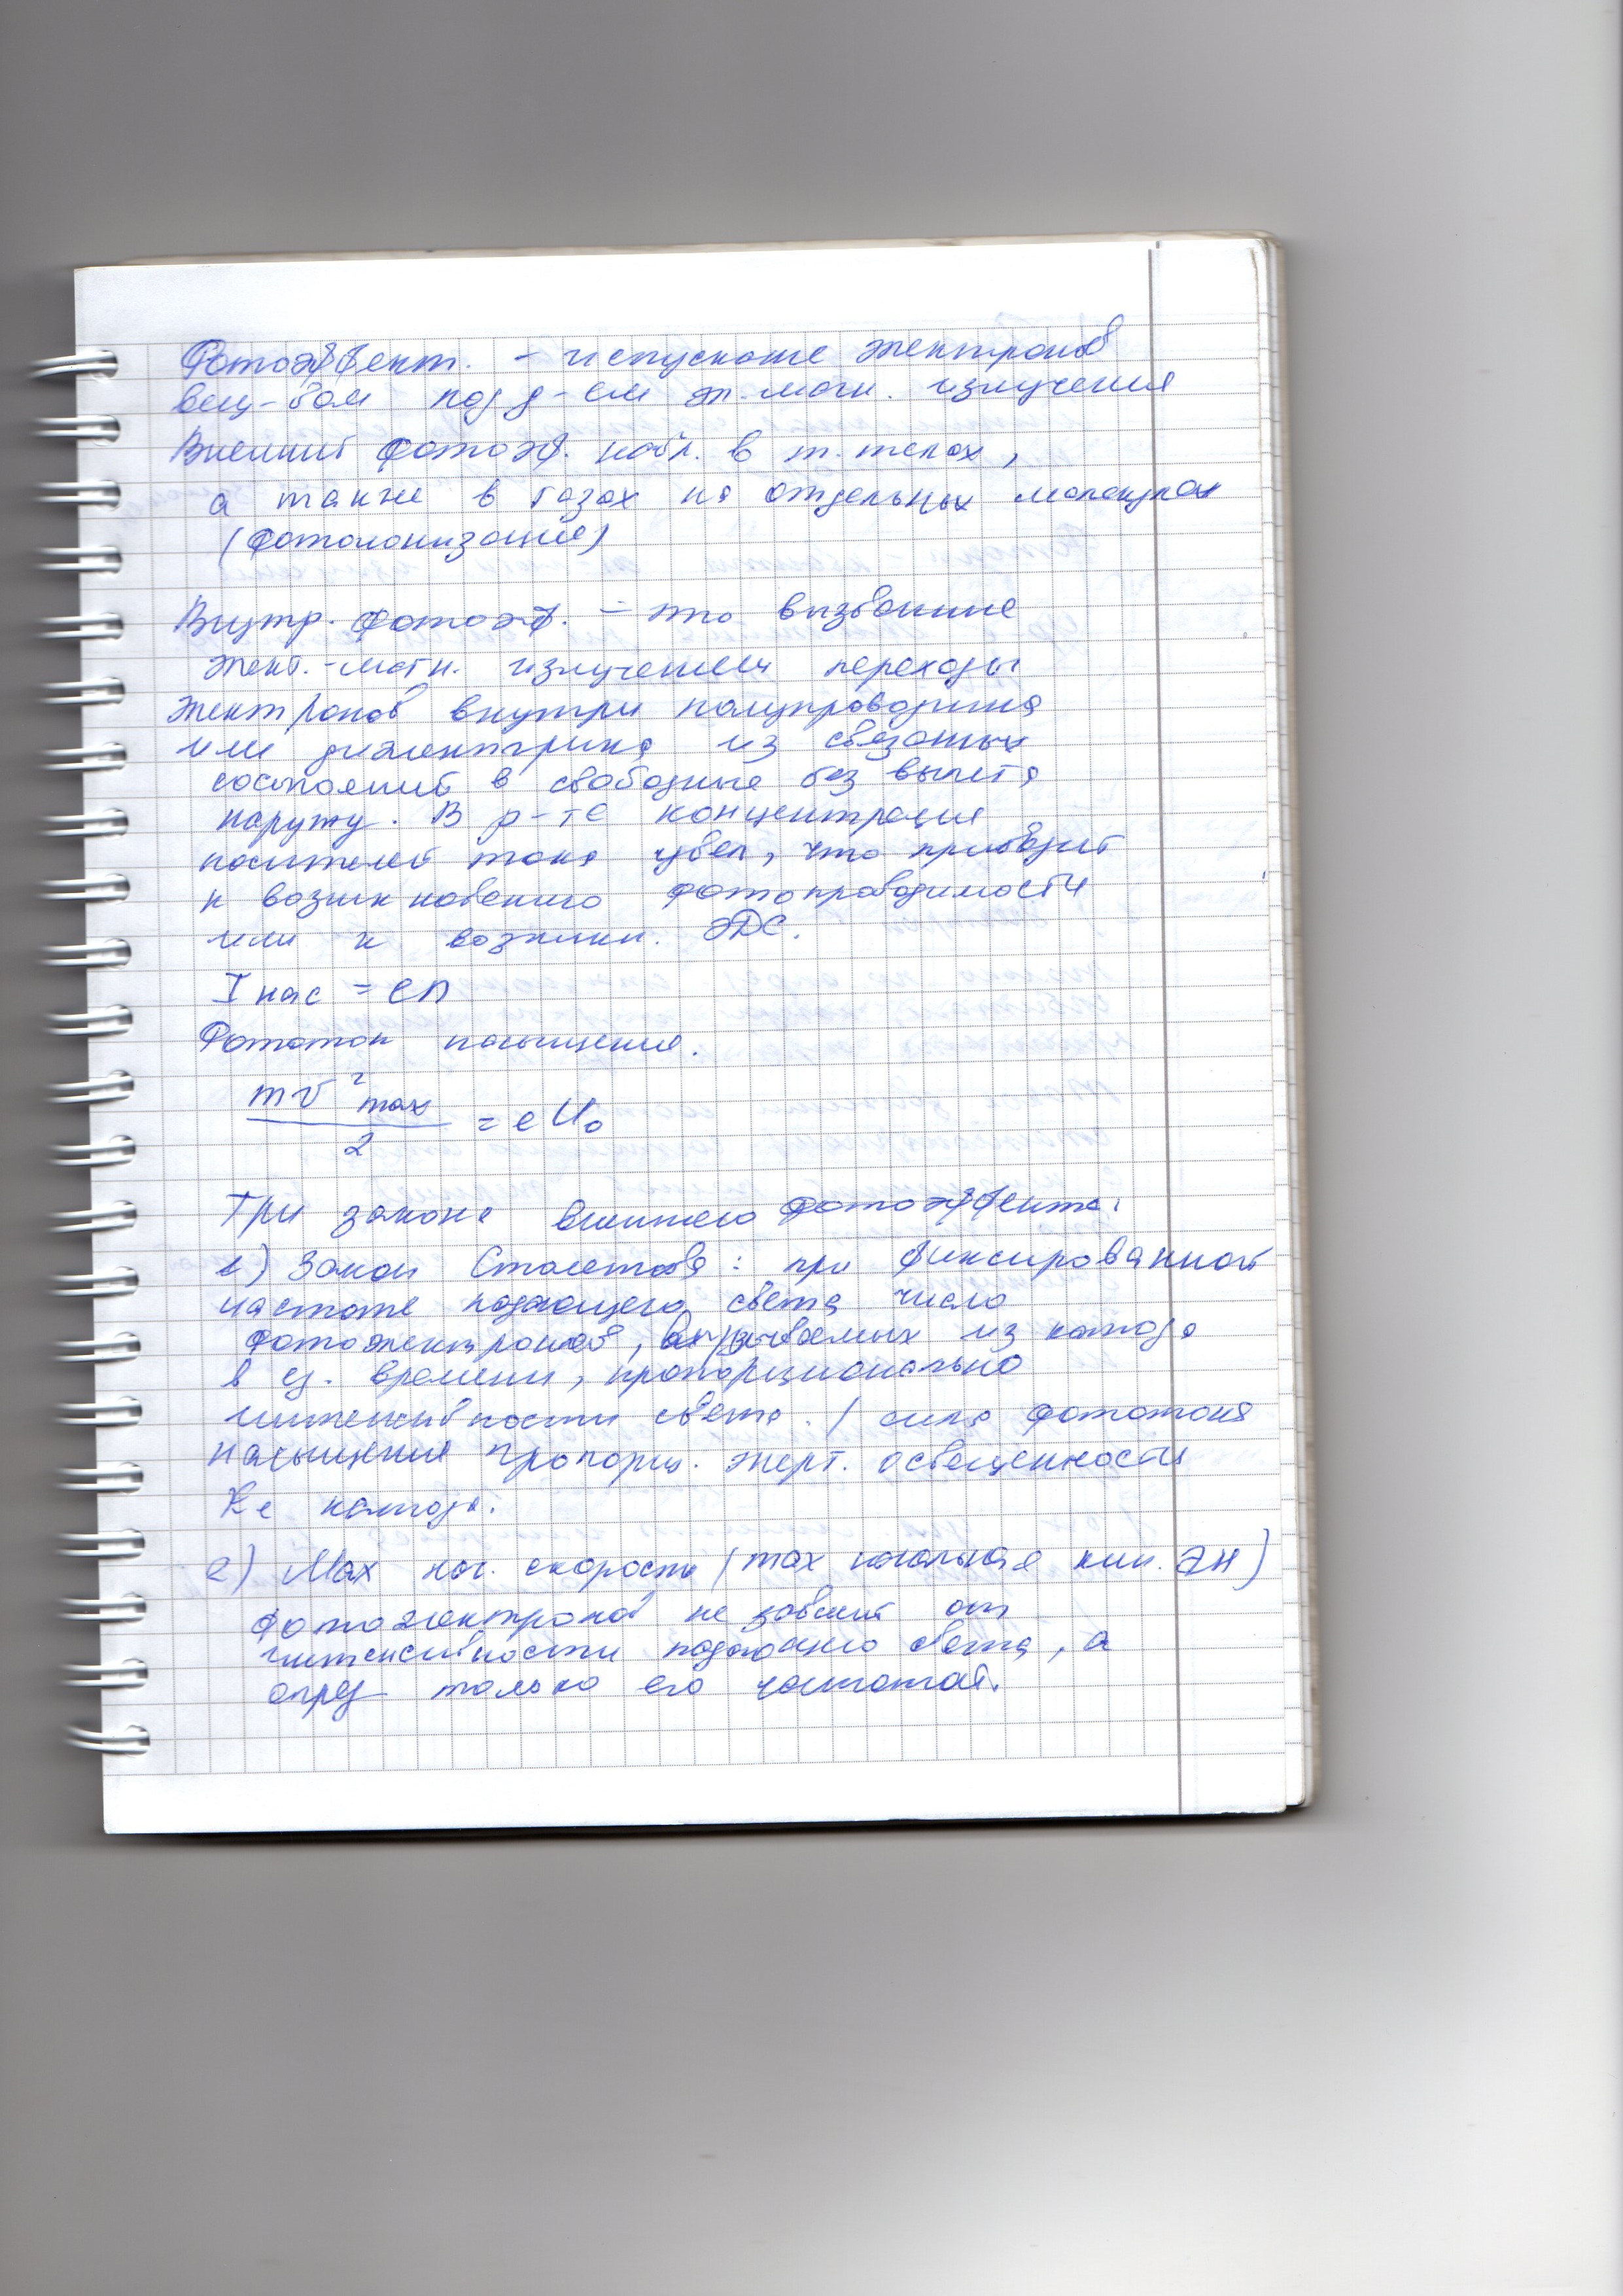 Фотоэффект. - испускание электронов
вещ-вом под д-ем эл.магн. излучения
Внешний фотоэф. набл. в т. телах,
а также в газах на отдельных молекулах
(фотоионизация)
Внутр. фотоэф. - это вызванные
элект.-магн. излучением переходы
электронов внутри полупроводника
или диэлектрика из связаных
состояний в свободные без вылета
наружу. В р-те концентрация
носителей тока увел, что приводит
к возникновению фотопроводимости
или к возникн. ЭДС.
I нас = en
Фототок насыщения.
mv²max / 2 = eU₀
Три закона внешнего фотоэффекта.
1) Закон Столетова: при фиксированной
частоте падающего света число
фотоэлектронов, вырываемых из катода
в ед. времени, пропорционально
интенсивности света. / сила фототока
насыщения пропорц. энерг. освещенности
Ee катода.
2) Max нач. скорость (max начальная кин. эн)
фотоэлектронов не зависит от
интенсивности падающего света, а
опред только его частотой.